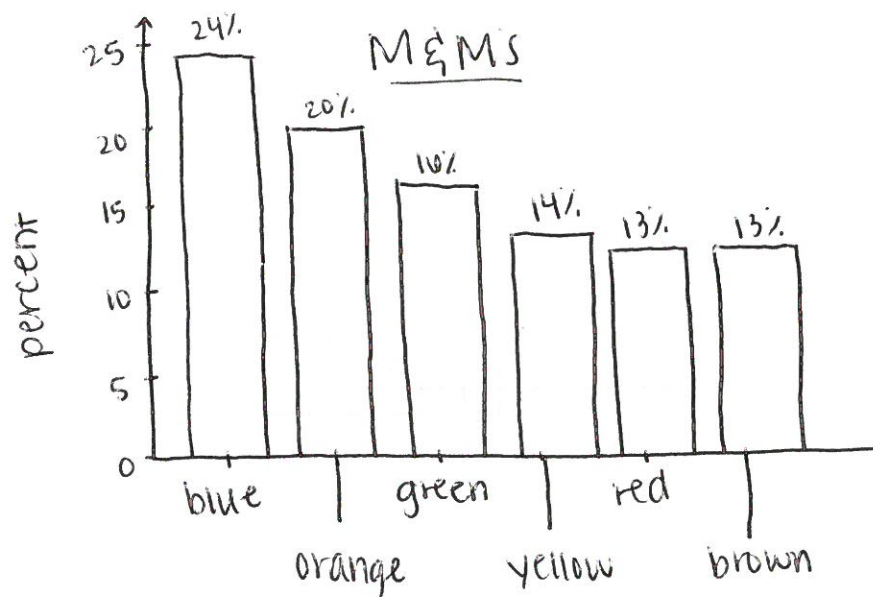 M&Ms
percent
25
20
15
10
5
0
24%
20%
16%
14%
13%
13%
blue
orange
green
yellow
red
brown